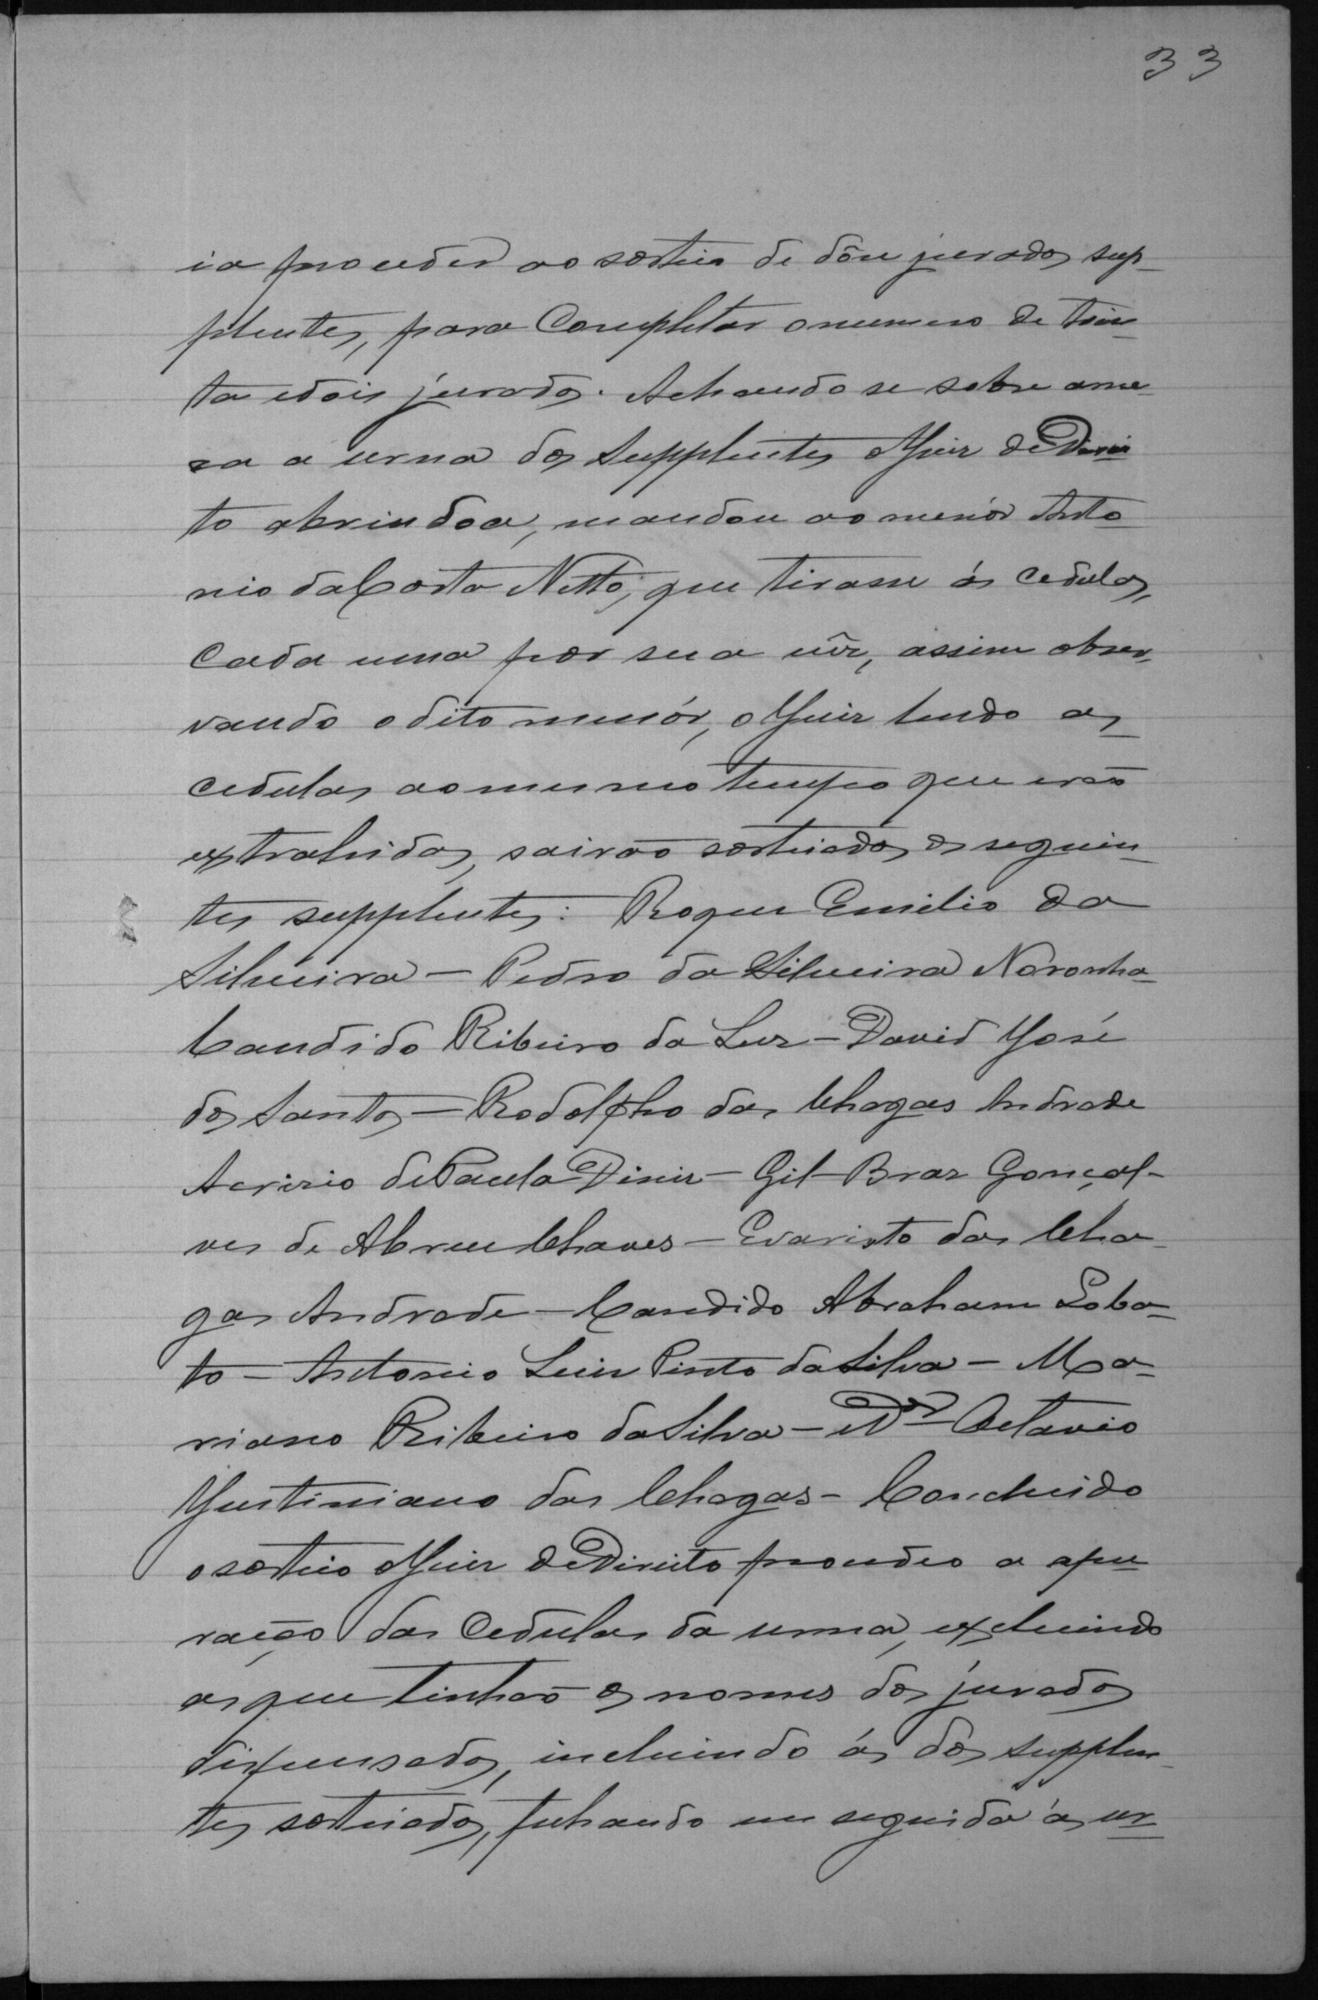 33
ia proceder ao sorteio de dôse jurados sup-
plentes, para Completar o numero de trin-
ta e dois jurados. Achando se sobre a me-
sa a urna dos Supplentes o Juiz de Direi
to abrindo a, mandou ao menór Anto
nio da Costa Netto, que tirasse ás cedulas,
Cada uma por sua vêz, assim obser-
vando o dito menór, o Juiz lendo as
cedulas ao mesmo tempo que erão
extrahidas, sairão sorteados os seguin-
tes supplentes: Roque Emilio da
Silveira – Pedro da Silveira Noronha
Candido Ribeiro da Luz – David José
dos Santos – Rodolpho das Chagas Andrade
Acrizio de Paula Diniz – Gil Braz Gonçal-
ves de Abreu Chaves – Evaristo das Cha-
gas Andrade – Candido Abraham Loba-
to – Antonio Luiz Pinto da Silva – Ma-
riano Ribeiro da Silva – Dr Octavio
Justiniano das Chagas – Concluido
o sorteio o Juiz de Direito procedeo a apu-
ração das Cedulas da urna, excluindo
as que tinhão os nomes dos jurados
dispensados, incluindo ás dos supplen-
tes sorteados, fechando em seguida ás ur-